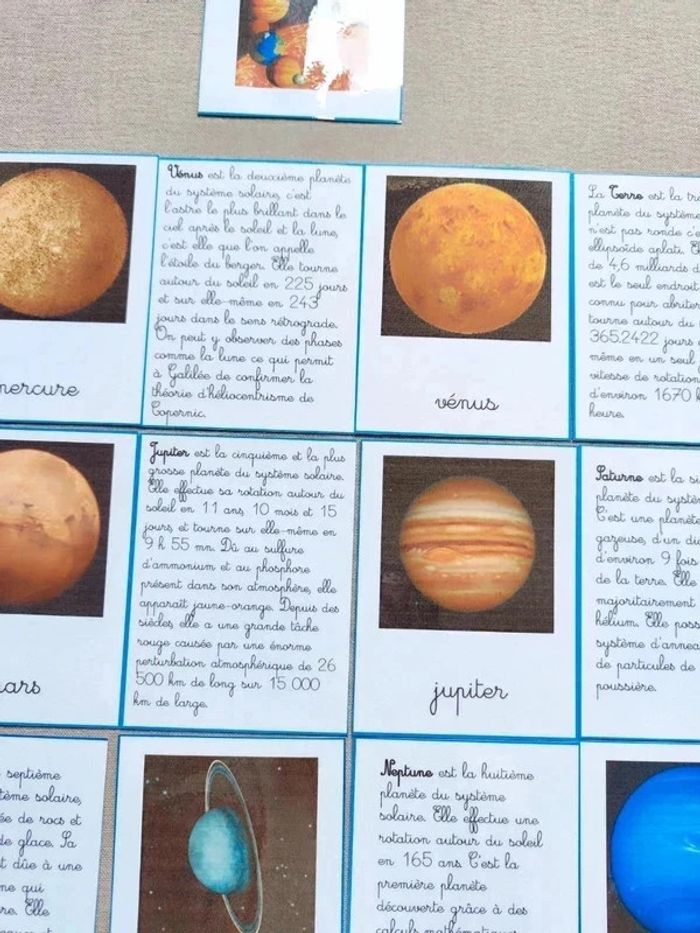 Vénus est la deuxième planète
du système solaire, c'est
l'astre le plus brillant dans le
ciel après le soleil et la lune,
c'est elle que l'on appelle
l'étoile du berger. Elle tourne
autour du soleil en 225 jours
et sur elle-même en 243
jours dans le sens rétrograde.
On peut y observer des phases
comme la lune ce qui permit
à Galilée de confirmer la
théorie d'héliocentrisme de
Copernic.
mercure
vénus
La Terre est la
planète du système
n'est pas ronde
ellipsoïde aplati.
de 4,6 milliards
est le seul endroit
connu pour abriter
tourne autour du
365.2422 jours
même en un seul
vitesse de rotation
d'environ 1670
heure.
Jupiter est la cinquième et la plus
grosse planète du système solaire.
Elle effectue sa rotation autour du
soleil en 11 ans, 10 mois et 15
jours, et tourne sur elle-même en
9 h 55 mn. Dû au sulfure
d'ammonium et au phosphore
présent dans son atmosphère, elle
apparaît jaune-orange. Depuis des
siècles, elle a une grande tâche
rouge causée par une énorme
perturbation atmosphérique de 26
500 km de long sur 15 000
km de large.
ars
jupiter
Saturne est la
planète du
C'est une planète
gazeuse, d'un
d'environ 9 fois
de la terre. Elle
majoritairement
hélium. Elle
système
de particules de
poussière.
septième
solaire,
de rocs et
de glace. Sa
dûe à une
qui
Elle
Neptune est la huitième
planète du système
solaire. Elle effectue une
rotation autour du soleil
en 165 ans. C'est la
première planète
découverte grâce à des
calculs mathématiques